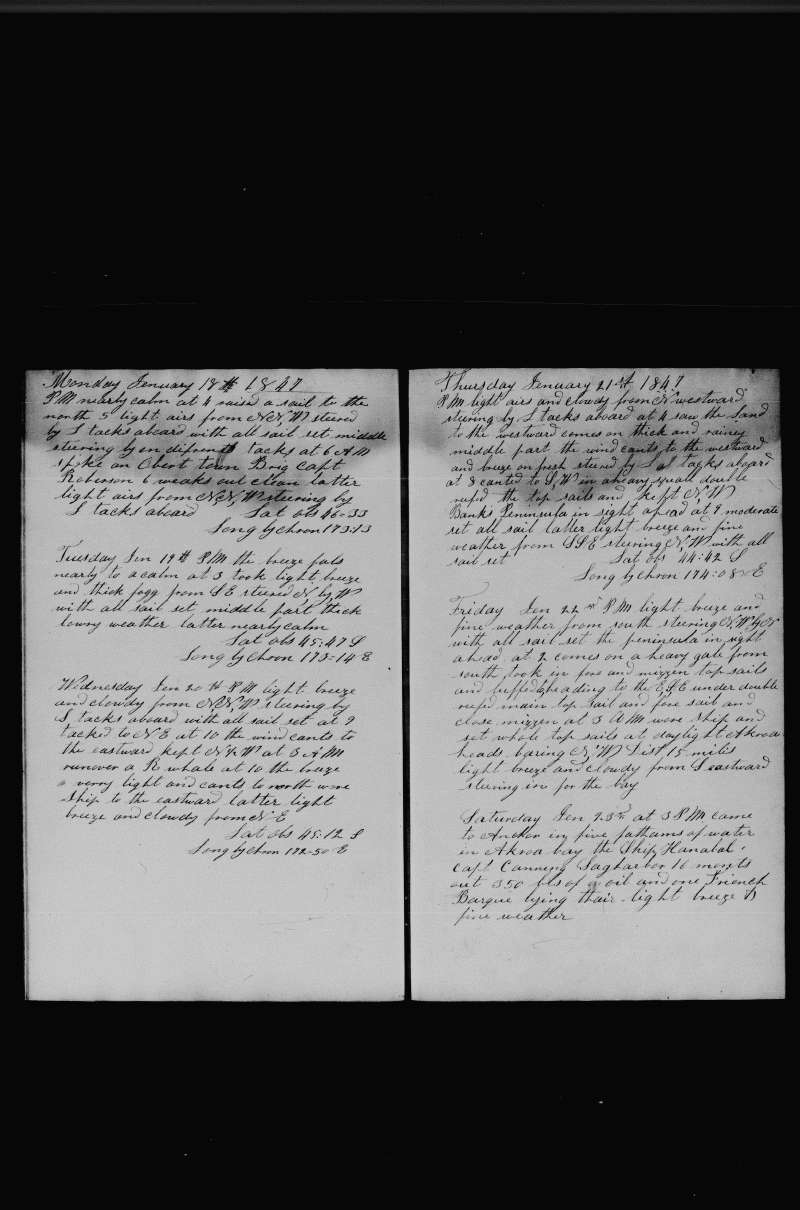 Monday Jenuary 18th 1847
P M nearly calm at 4 raised a sail to the
north 5 light airs from N N, W steered
by L tacks aboard with all sail set middle
steering by on difrent tacks at 6 A M
spoke an Obert town Brig Capt
Roberson 6 weaks out clean latter
light airs from N, N, W steering by
L tacks aboard Lat obs 46=33
Long by chron 173:13
Tuesday Jen 19th P M the breeze fals
nearly to a calm at 3 took light breeze
and thick fogg from S E steered N by W
with all sail set middle part thick
lowry weather latter nearly calm
Lat obs 45:47 S
Long by Chron 173=14 E
Wednesday Jen 20th P M light breeze
and clowdy from N N, W steering by
L tacks aboard with all sail set at 9
tacked to N E at 10 the wind cants to
the eastward kept N, W at 3 A M
runover a R whale at 10 the breeze
verry light and cants to north wore
Ship to the eastward latter light
breeze and clowdy from N E
Lat obs 45:12 S
Long by chron 172=50 E
Thursday Jenuary 21st 1847
P M light airs and clowdy from N westward
steering by L tacks aboard at 4 saw the Land
to the westward comes on thick and rainey
middle part the wind cants to the westward
and breeze on fresh steered by L tacks aboard
at 8 canted to S, W in a heavy squall double
reefd the top sails and kept N, W
Banks Peninsula in sight ahead at 9 moderate
set all sail latter light breeze and fine
weather from S S E steering N, W with all
sail set Lat obs 44:42 S
Long by chron 174:08 E
Friday Jen 22nd P M light breeze and
fine weather from south steering N, W by N
with all sail set the peninsula in sight
ahead at 2 comes on a heavy gale from
south took in fore and mizzen top sails
and luffed heading to the E, S E under double
reefd main top sail and fore sail and
close mizzen at 3 A M wore ship and
set whole top sails at daylight Akroa
heads baring N, W Dist 15 miles
light breeze and clowdy from S eastward
steering in for the bay
Saturday Jen 23rd at 3 P M came
to Anchor in five fathams of water
in Akroa bay the Ship Hanabal
Capt Canning Sagharbor 16 months
out 350 bls of oil and one French
Barque lying thair light breeze &
fine weather